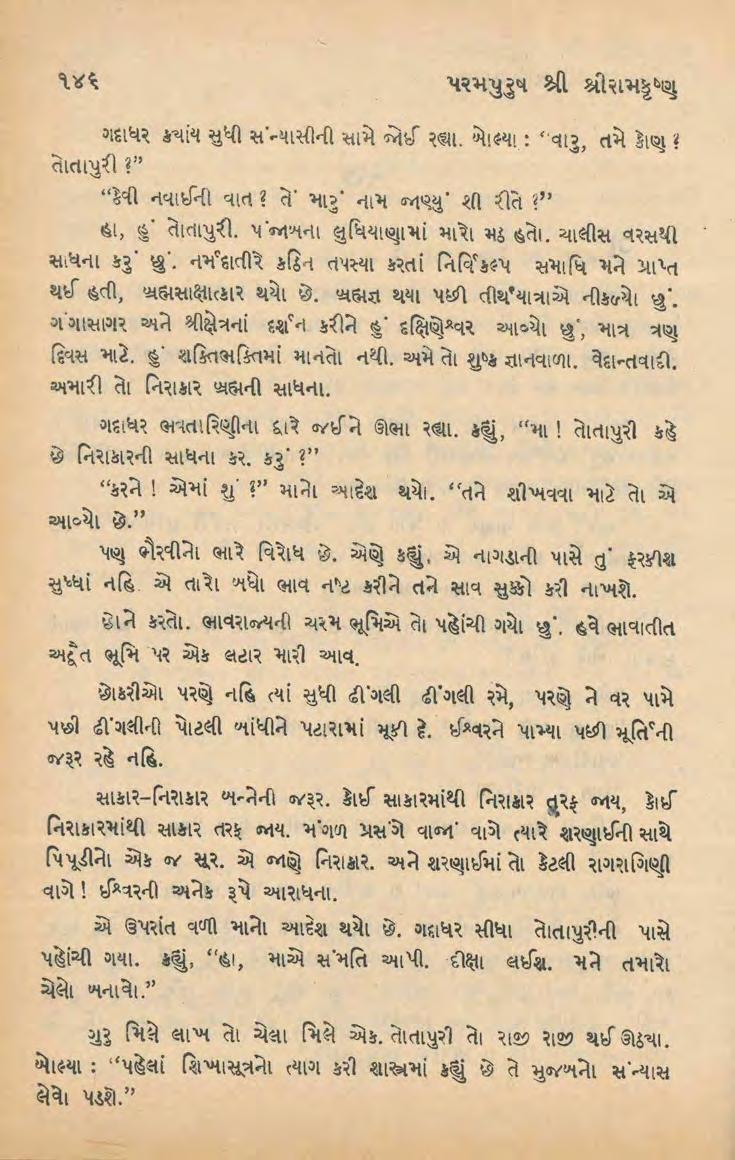 ૧૪૬ પરમપુરુષ શ્રી શ્રીરામકૃષ્ણ
ગદાધર ક્યાંય સુધી સંન્યાસીની સામે જોઈ રહ્યા. બોલ્યા : “વારુ, તમે કોણ ?
તોતાપુરી ?”
“કેવી નવાઈની વાત ? તેં મારું નામ જાણ્યું શી રીતે ?”
હા, હું તોતાપુરી. પંજાબના લુધિયાણામાં મારો મઠ હતો. ચાલીસ વરસથી
સાધના કરું છું. નર્મદાતીરે કઠિન તપસ્યા કરતાં નિર્વિકલ્પ સમાધિ મને પ્રાપ્ત
થઈ હતી, બ્રહ્મસાક્ષાત્કાર થયો છે. બ્રહ્મજ્ઞ થયા પછી તીર્થયાત્રાએ નીકળ્યો છું.
ગંગાસાગર અને શ્રીક્ષેત્રનાં દર્શન કરીને હું દક્ષિણેશ્વર આવ્યો છું, માત્ર ત્રણ
દિવસ માટે. હું શક્તિભક્તિમાં માનતો નથી. અમે તો શુષ્ક જ્ઞાનવાળા. વેદાન્તવાદી.
અમારી તો નિરાકાર બ્રહ્મની સાધના.
ગદાધર ભવતારિણીના દ્વારે જઈને ઊભા રહ્યા. કહ્યું, “મા ! તોતાપુરી કહે
છે નિરાકારની સાધના કર. કરું ?”
“કરને ! એમાં શું ?” માનો આદેશ થયો. “તને શીખવવા માટે તો એ
આવ્યો છે.”
પણ ભૈરવીનો ભારે વિરોધ છે. એણે કહ્યું, એ નાગડાની પાસે તું ફરકીશ
સુધ્ધાં નહિ. એ તારો બધો ભાવ નષ્ટ કરીને તને સાવ સુક્કો કરી નાખશે.
છોને કરતો. ભાવરાજ્યની ચરમ ભૂમિએ તો પહોંચી ગયો છું. હવે ભાવાતીત
અદ્વૈત ભૂમિ પર એક લટાર મારી આવ.
છોકરીઓ પરણે નહિ ત્યાં સુધી ઢીંગલી ઢીંગલી રમે, પરણે ને વર પામે
પછી ઢીંગલીની પોટલી બાંધીને પટારામાં મૂકી દે. ઈશ્વરને પામ્યા પછી મૂર્તિની
જરૂર રહે નહિ.
સાકાર–નિરાકાર બન્નેની જરૂર. કોઈ સાકારમાંથી નિરાકાર તરફ જાય, કોઈ
નિરાકારમાંથી સાકાર તરફ જાય. મંગળ પ્રસંગે વાજાં વાગે ત્યારે શરણાઈની સાથે
પિપૂડીનો એક જ સૂર. એ જાણે નિરાકાર. અને શરણાઈમાં તો કેટલી રાગરાગિણી
વાગે ! ઈશ્વરની અનેક રૂપે આરાધના.
એ ઉપરાંત વળી માનો આદેશ થયો છે. ગદાધર સીધા તોતાપુરીની પાસે
પહોંચી ગયા. કહ્યું, “હા, માએ સંમતિ આપી. દીક્ષા લઈશ. મને તમારો
ચેલો બનાવો.”
ગુરુ મિલે લાખ તો ચેલા મિલે એક. તોતાપુરી તો રાજી રાજી થઈ ઊઠ્યા.
બોલ્યા : “પહેલાં શિખાસૂત્રનો ત્યાગ કરી શાસ્ત્રમાં કહ્યું છે તે મુજબનો સંન્યાસ
લેવો પડશે.”